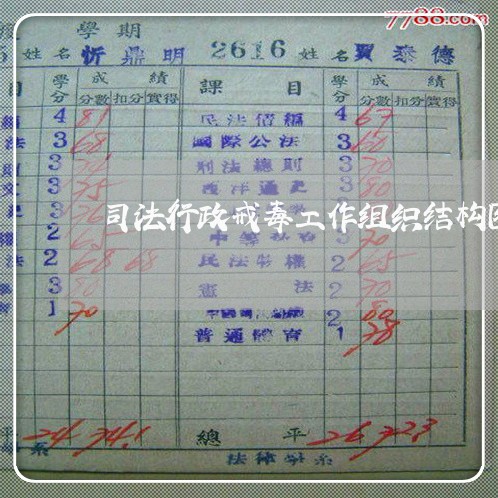 7788.com
學期
姓名 忻鼎明 2616 姓名 賈泰德
目 學分 成績 課目 學分 成績
分數 扣分 實得 分數 扣分 實得
4 81 民法債編 4 67
法 3 68 國際公法 3 60
3 刑法總則 3 70
3 75 西洋通史 3 80
司法行政戒毒工作组织结构
2 65 3 70
法 2 68 68 民法物權 2 65
3 80 憲法 2 70
1 70 2 80
普通體育 1 78
24 74.1 總平 26 72.3
系 法律學系